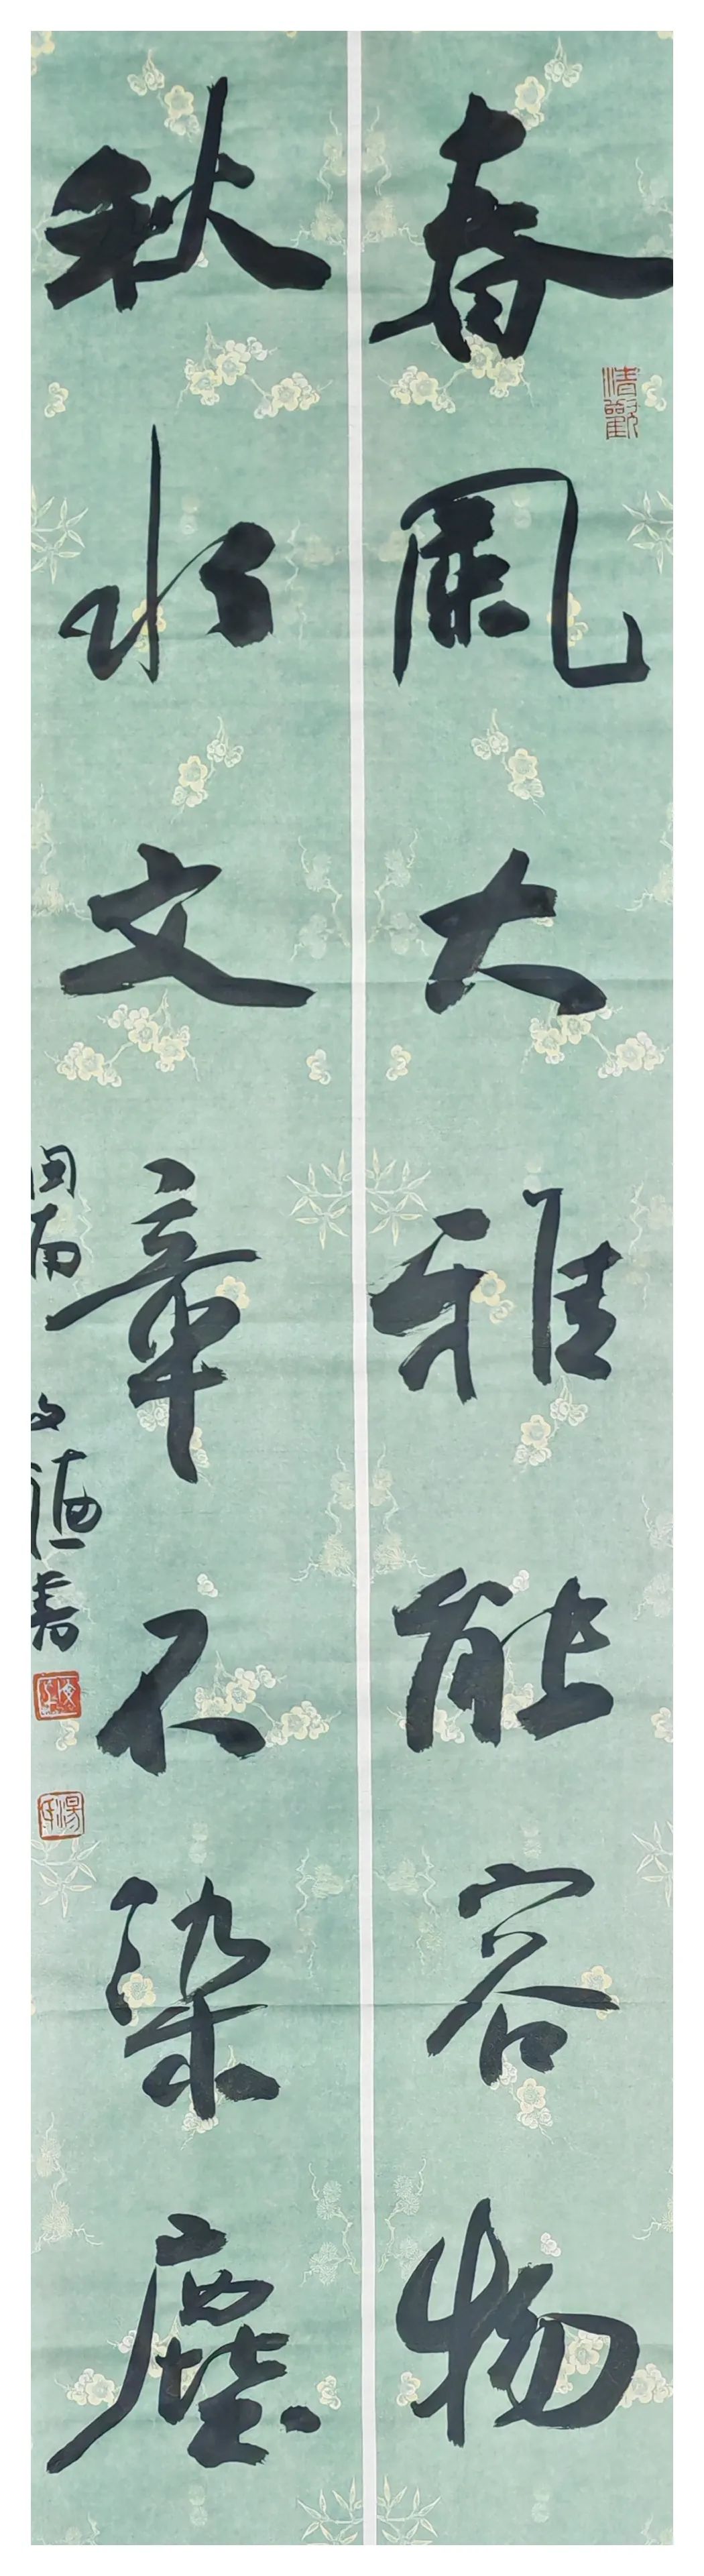 春風大雅能容物
清歡
秋水文章不染塵